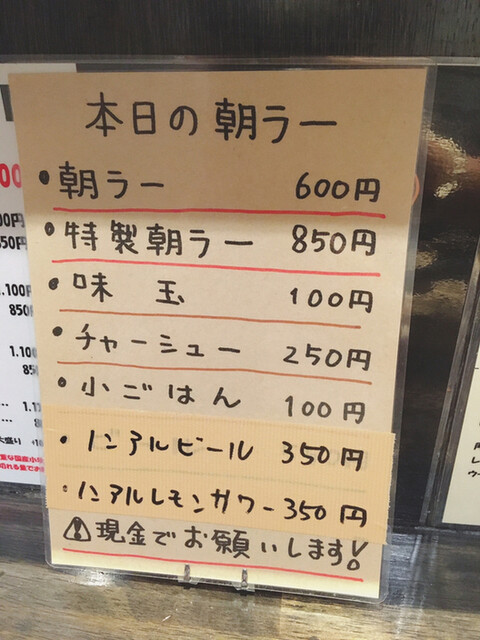 本日の朝ラー
・朝ラー 600円
・特製朝ラー 850円
・味 玉 100円
・チャーシュー 250円
・小ごはん 100円
・ノンアルビール 350円
・ノンアルレモンサワー 350円
⚠現金でお願いします!